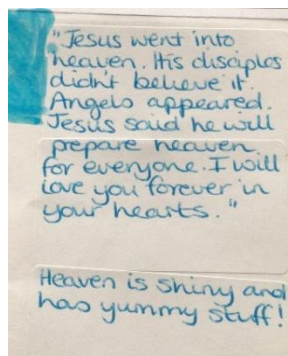 "Jesus went into
heaven. His disciples
didn't believe it.
Angels appeared.
Jesus said he will
prepare heaven
for everyone. I will
love you forever in
your hearts."
Heaven is shiny and
has yummy stuff!